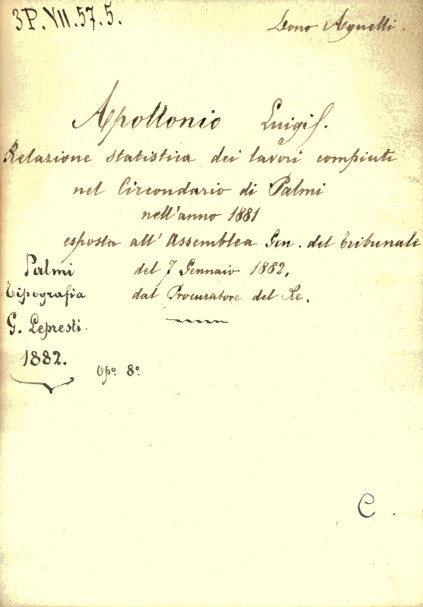 3P.VII.57.5.
Dono Agnelli.
Apollonio Luigi.
Relazione statistica dei lavori compiuti
nel Circondario di Palmi
nell'anno 1881
esposta all'Assemblea Gen. del Tribunale
del 7 Gennaio 1882,
dal Procuratore del Re.
Palmi
Tipografia
G. Lepresti.
1882.
Opo. 8o.
C.